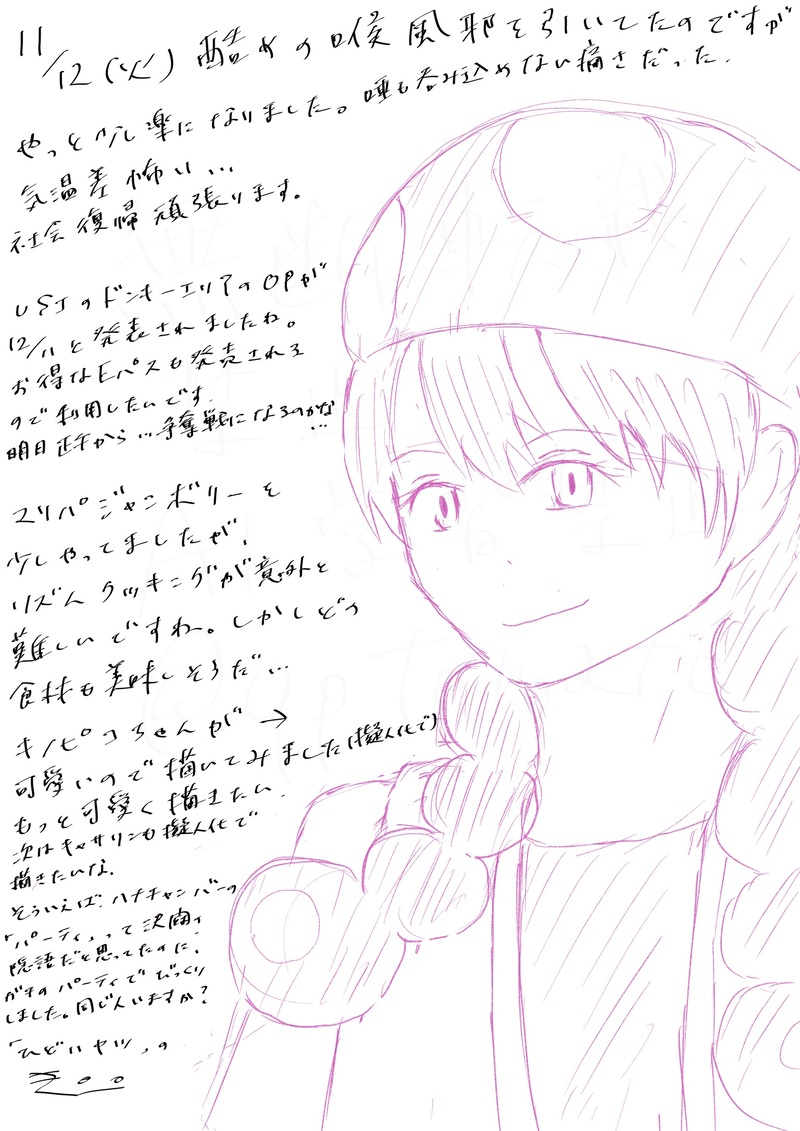 11/12(火) 酷めの喉風邪を引いてたのですが
やっと少し楽になりました。唾も呑み込めない痛さだった.
気温差怖い…
社会復帰頑張ります。
USJのドンキーエリアのOPが
12/11と発表されましたね。
お得なEパスも発売される
ので利用したいです.
明日正午から…争奪戦になるのかな…
スパリパジャンボリーを
少しやってましたが、
リズムクッキングが意外と
難しいですね。しかしどの
食材も美味しそうだ…
キノピコちゃんが→
可愛いので描いてみました(擬人化で)
もっと可愛く描きたい.
次はキャサリンも擬人化で
描きたいな.
そういえば、ハナチャンバーの
「パーティ」って決闘の
隠語だと思ってたのに、
ガチのパーティでびっくり
しました。同じ人いますか?
「ひどいヤツ」の
無断転載
AI学習禁止